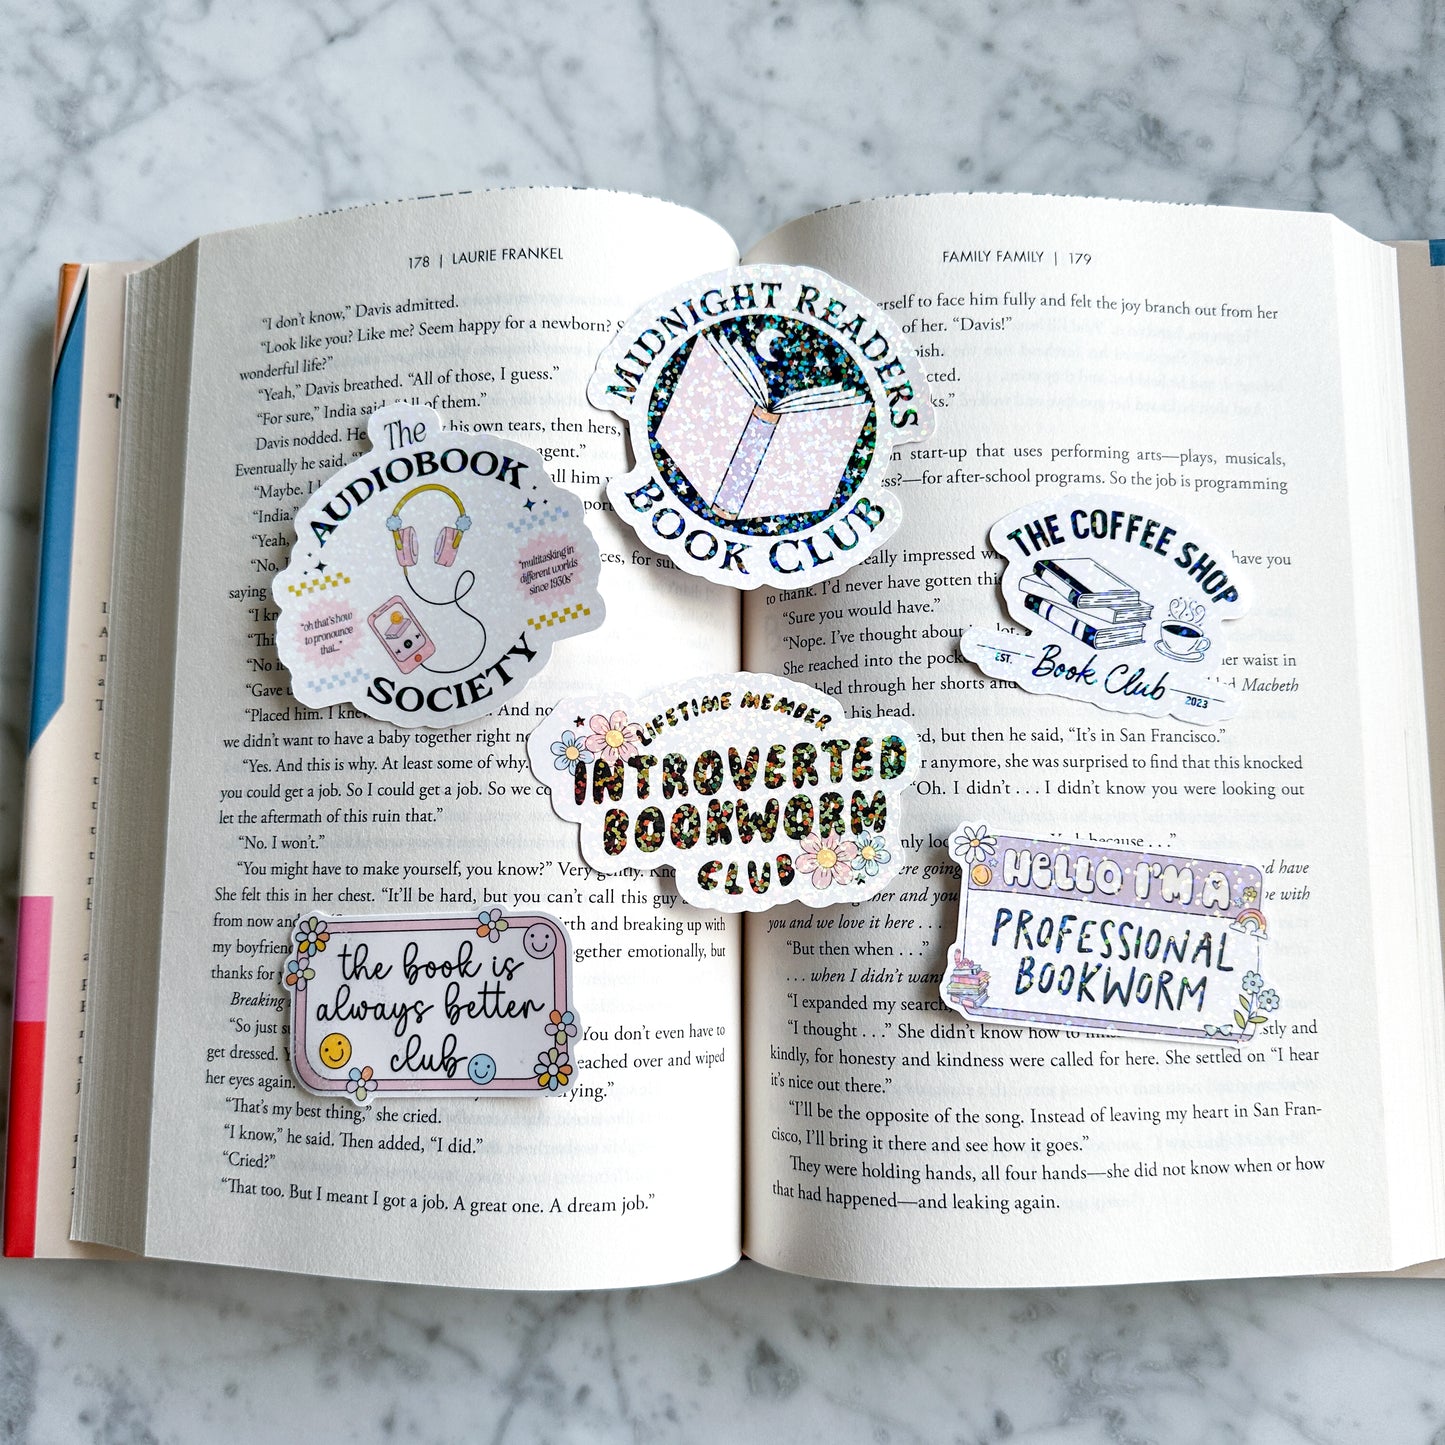 178 | LAURIE FRANKEL
“I don’t know,” Davis admitted.
“Look like you? Like me? Seem happy for a newborn?
wonderful life?”
“Yeah,” Davis breathed. “All of those, I guess.”
“For sure,” India said. “All of them.”
Davis nodded. He his own tears, then hers,
Eventually he said, agent.”
“Maybe. I all him
“India.”
“Yeah,
“No, I for
saying
“I
“No
“Gave
“Placed him. I knew And
we didn’t want to have a baby together right
“Yes. And this is why. At least some of why.
you could get a job. So I could get a job. So we
let the aftermath of this ruin that.”
“No. I won’t.”
“You might have to make yourself, you know?” Very gently.
She felt this in her chest. “It’ll be hard, but you can’t call this guy
from now and and breaking up with
my together emotionally, but
thanks for
Breaking
“So just You don’t even have to
get dressed. reached over and wiped
her eyes again.
“That’s my best thing,” she cried.
“I know,” he said. Then added, “I did.”
“Cried?”
“That too. But I meant I got a job. A great one. A dream job.”
The
AUDIOBOOK
SOCIETY
“oh that’s how
to pronounce
that...”
“multitasking in
different worlds
since 1930s”
MIDNIGHT READERS
BOOK CLUB
LIFETIME MEMBER
INTROVERTED
BOOKWORM
CLUB
the book is
always better
club
FAMILY FAMILY | 179
to face him fully and felt the joy branch out from her
of her. “Davis!”
start-up that uses performing arts—plays, musicals,
for after-school programs. So the job is programming
really impressed have you
to thank. I’d never have gotten this
“Sure you would have.”
“Nope. I’ve thought about it a lot.
She reached into the her waist in
through her shorts and Macbeth
his head.
but then he said, “It’s in San Francisco.”
anymore, she was surprised to find that this knocked
“Oh. I didn’t . . . I didn’t know you were looking out
because . . .”
going and have
and you with
you and we love it here . . .
“But then when . . .”
. . . when I didn’t
“I expanded my search,
“I thought . . .” She didn’t know how to and
kindly, for honesty and kindness were called for here. She settled on “I hear
it’s nice out there.”
“I’ll be the opposite of the song. Instead of leaving my heart in San Fran-
cisco, I’ll bring it there and see how it goes.”
They were holding hands, all four hands—she did not know when or how
that had happened—and leaking again.
THE COFFEE SHOP
EST. Book Club 2023
HELLO I’M A
PROFESSIONAL
BOOKWORM